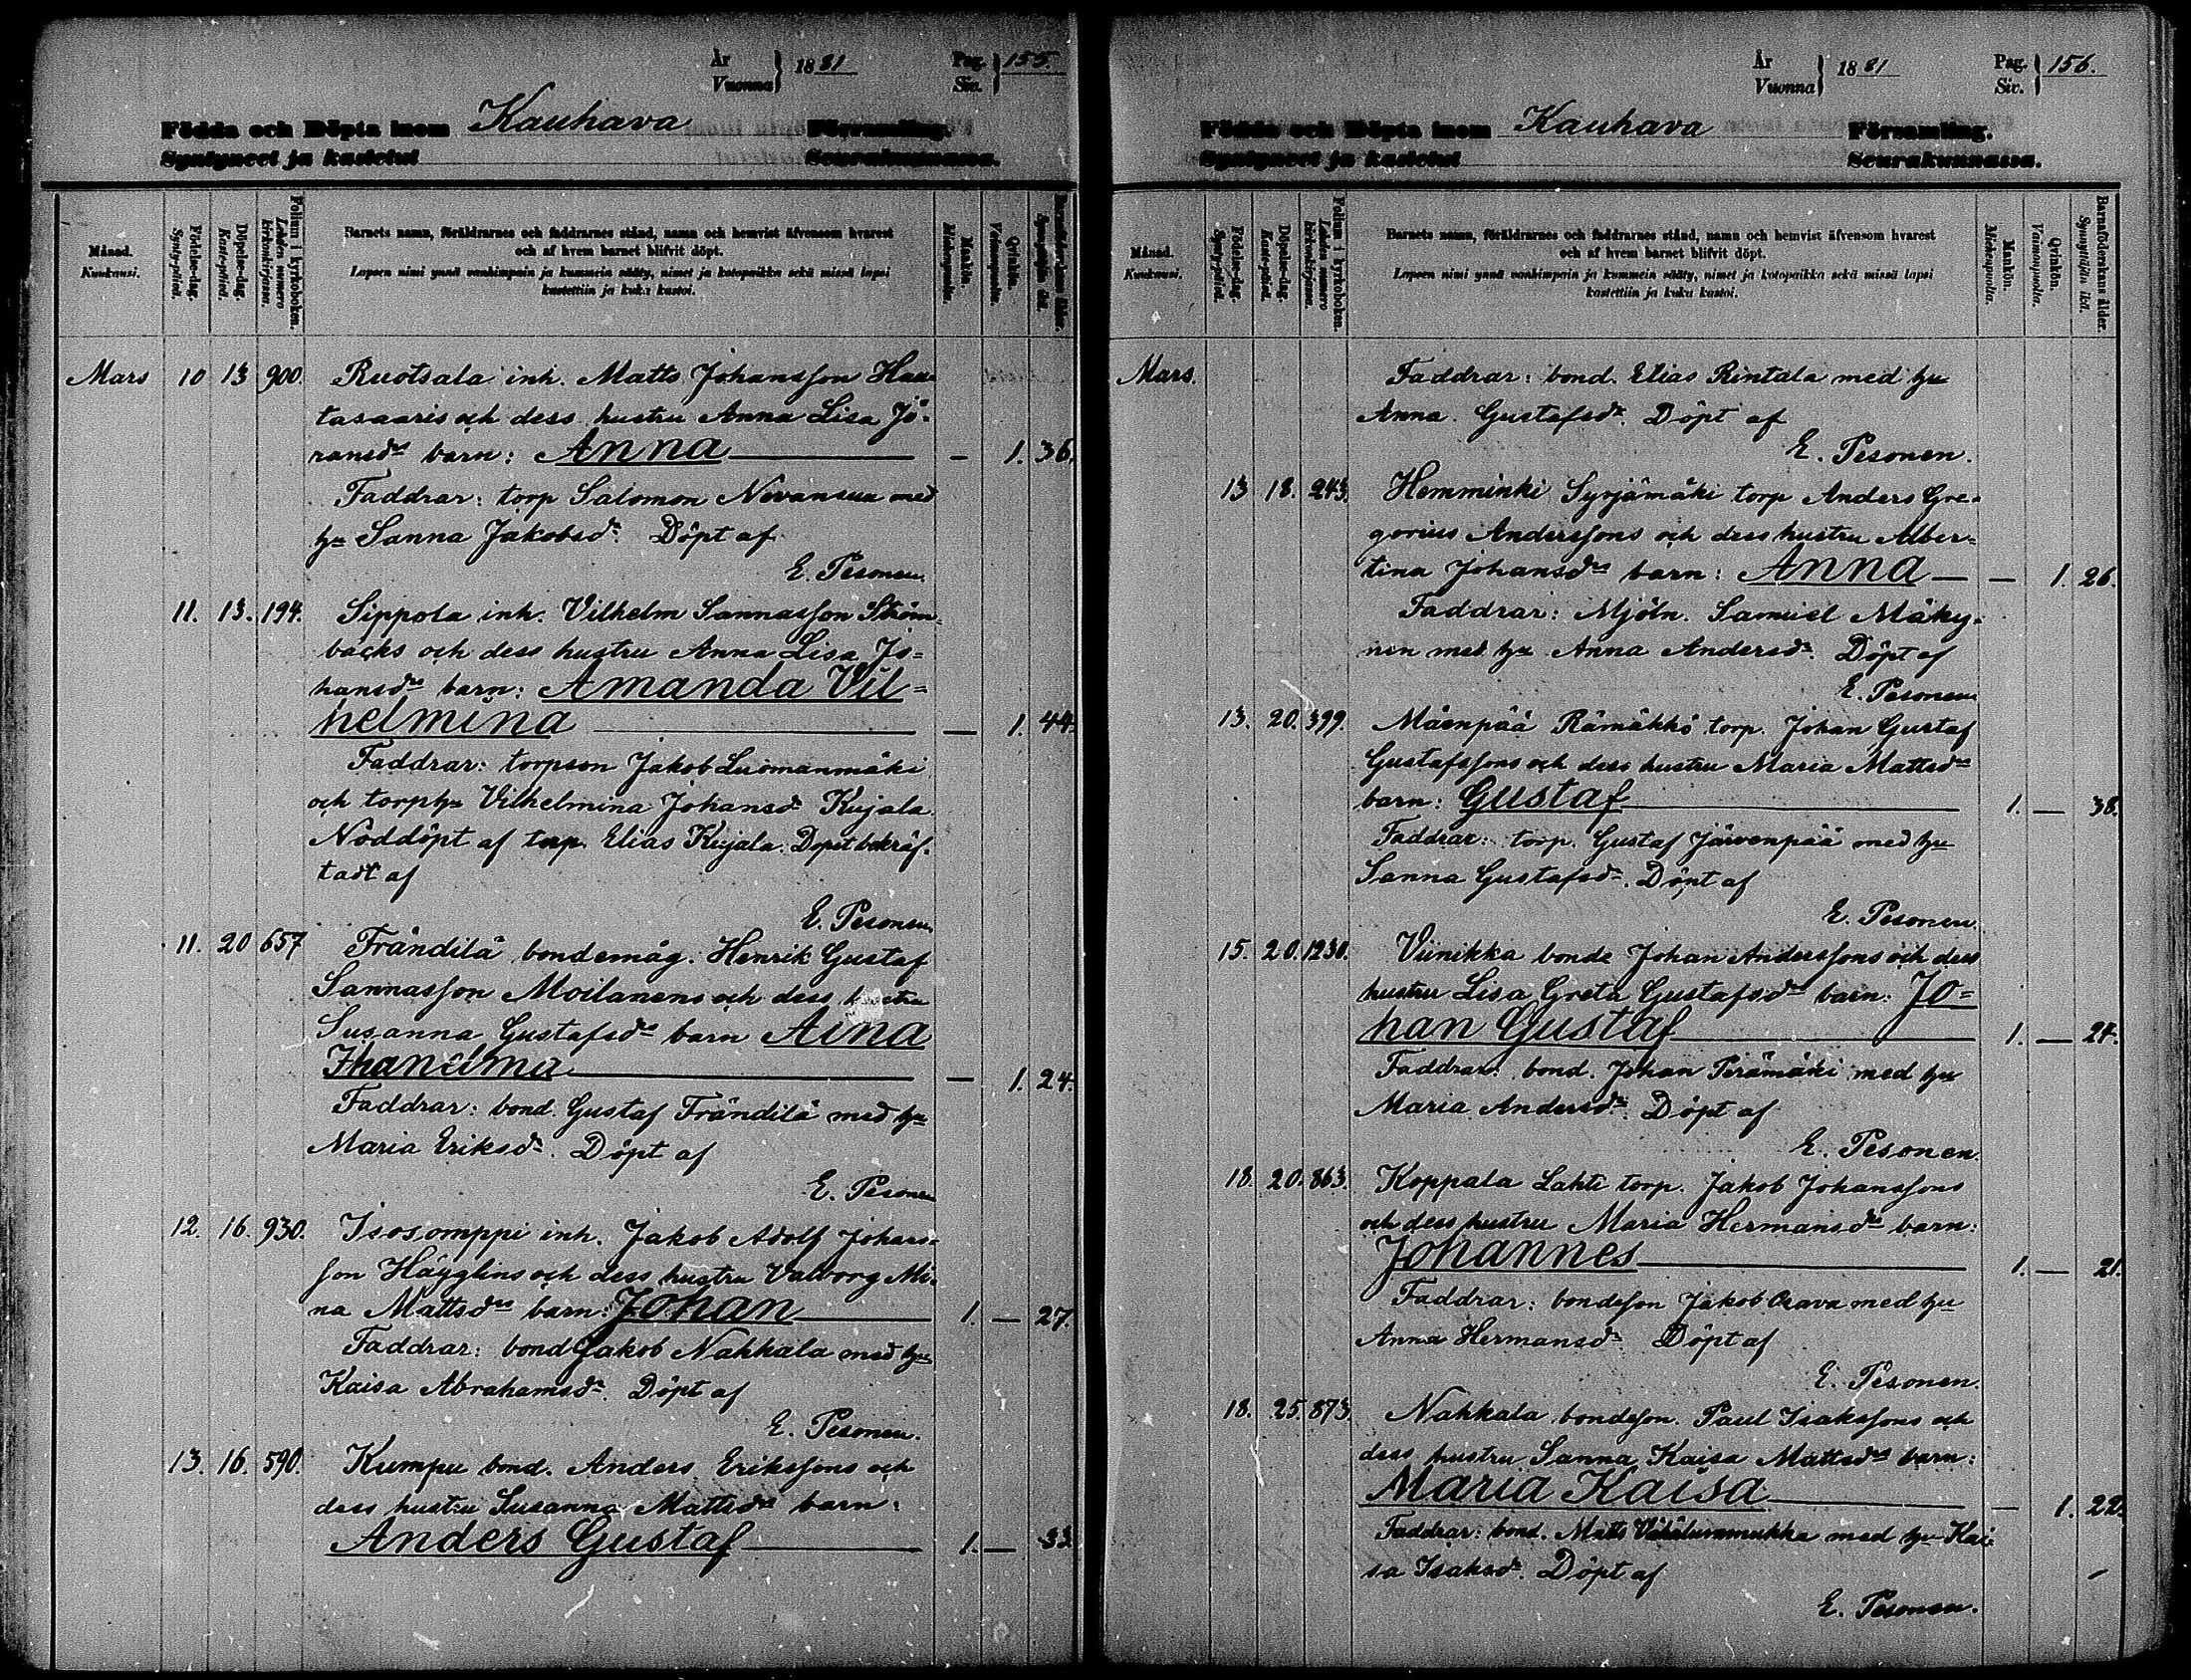 År
Vuonna } 1881
Pag.
Siv. } 155.
Födda och Döpta inom Kauhava Församling.
Syntyneet ja kastetut Seurakunnassa.
Månad.
Kuukausi.
Födelse-dag.
Synty-päivä.
Döpelse-dag.
Kaste-päivä.
Folium i kyrkoboken.
Lehden numero kirkonkirjassa.
Barnets namn, föräldrarnes och faddrarnes stånd, namn och hemvist äfvensom hvarest
och af hvem barnet blifvit döpt.
Lapsen nimi ynnä vanhimpain ja kummein sääty, nimet ja kotopaikka sekä missä lapsi
kastettiin ja kuka kastoi.
Mankön.
Miehenpuolia.
Qvinkön.
Vaimonpuolia.
Barnaföderskans ålder.
Synnyttäjän ikä.
Mars 10 13 900. Ruotsala inh. Matts Johansson Hau-
tasaaris och dess hustru Anna Lisa Jö-
ransds barn: Anna — 1. 36.
Faddrar: torp Salomon Nevansuu med
hu Sanna Jakobsdr. Döpt af
E. Pesonen.
11. 13. 194. Sippola inh. Vilhelm Sannasson Ström-
bäcks och dess hustru Anna Lisa Jo-
hansds barn: Amanda Vil-
helmina — 1. 44.
Faddrar: torpson Jakob Luomanmäki
och torphu Vilhelmina Johansdr Kujala.
Nöddöpt af torp. Elias Kujala. Dopet bekräf-
tadt af
E. Pesonen.
11. 20 657 Frändilä bondemåg. Henrik Gustaf
Sannasson Moilanens och dess hustru
Susanna Gustafsds barn Aina
Ihanelma — 1. 24.
Faddrar: bond. Gustaf Frändilä med hu
Maria Eriksdr. Döpt af
E. Pesonen
12. 16. 930. Isosomppi inh. Jakob Adolf Johans-
son Häyglins och dess hustru Valborg Mi-
na Mattsds barn: Johan 1. — 27.
Faddrar: bond Jakob Nahkala med hu
Kaisa Abrahamsdr. Döpt af
E. Pesonen.
13. 16. 590. Kumpu bond. Anders Erikssons och
dess hustru Susanna Mattsds barn:
Anders Gustaf 1. — 33
År
Vuonna } 1881
Pag.
Siv. } 156.
Födda och Döpta inom Kauhava Församling.
Syntyneet ja kastetut Seurakunnassa.
Månad.
Kuukausi.
Födelse-dag.
Synty-päivä.
Döpelse-dag.
Kaste-päivä.
Folium i kyrkoboken.
Lehden numero kirkonkirjassa.
Barnets namn, föräldrarnes och faddrarnes stånd, namn och hemvist äfvensom hvarest
och af hvem barnet blifvit döpt.
Lapsen nimi ynnä vanhimpain ja kummein sääty, nimet ja kotopaikka sekä missä lapsi
kastettiin ja kuka kastoi.
Mankön.
Miehenpuolia.
Qvinkön.
Vaimonpuolia.
Barnaföderskans ålder.
Synnyttäjän ikä.
Mars. Faddrar: bond. Elias Rintala med hu
Anna Gustafsdr. Döpt af
E. Pesonen.
13 18. 243. Hemminki Syrjämäki torp Anders Gre-
gorius Anderssons och dess hustru Alber-
tina Johansds barn: Anna — 1. 26.
Faddrar: Mjöln. Samuel Mäky-
nen med hu Anna Andersdr. Döpt af
E. Pesonen
13. 20. 399. Mäenpää Rämäkkö torp. Johan Gustaf
Gustafssons och dess hustru Maria Mattsds
barn: Gustaf 1. — 38.
Faddrar: torp. Gustaf Järvenpää med hu
Sanna Gustafsdr. Döpt af
E. Pesonen.
15. 20. 1230. Viinikka bonde Johan Anderssons och dess
hustru Lisa Greta Gustafsds barn: Jo-
han Gustaf 1. — 24.
Faddrar: bond. Johan Perämäki med hu
Maria Andersdr. Döpt af
E. Pesonen.
18. 20. 863. Koppala Lahti torp. Jakob Johanssons
och dess hustru Maria Hermansds barn:
Johannes 1. — 21.
Faddrar: bondeson Jakob Orava med hu
Anna Hermansdr Döpt af
E. Pesonen.
18. 25. 873. Nahkala bondeson. Paul Isakssons och
dess hustru Sanna Kaisa Mattsds barn:
Maria Kaisa — 1. 22.
Faddrar: bond. Matts Vähäluvammukka med hu Kai-
sa Isaksdr. Döpt af
E. Pesonen.